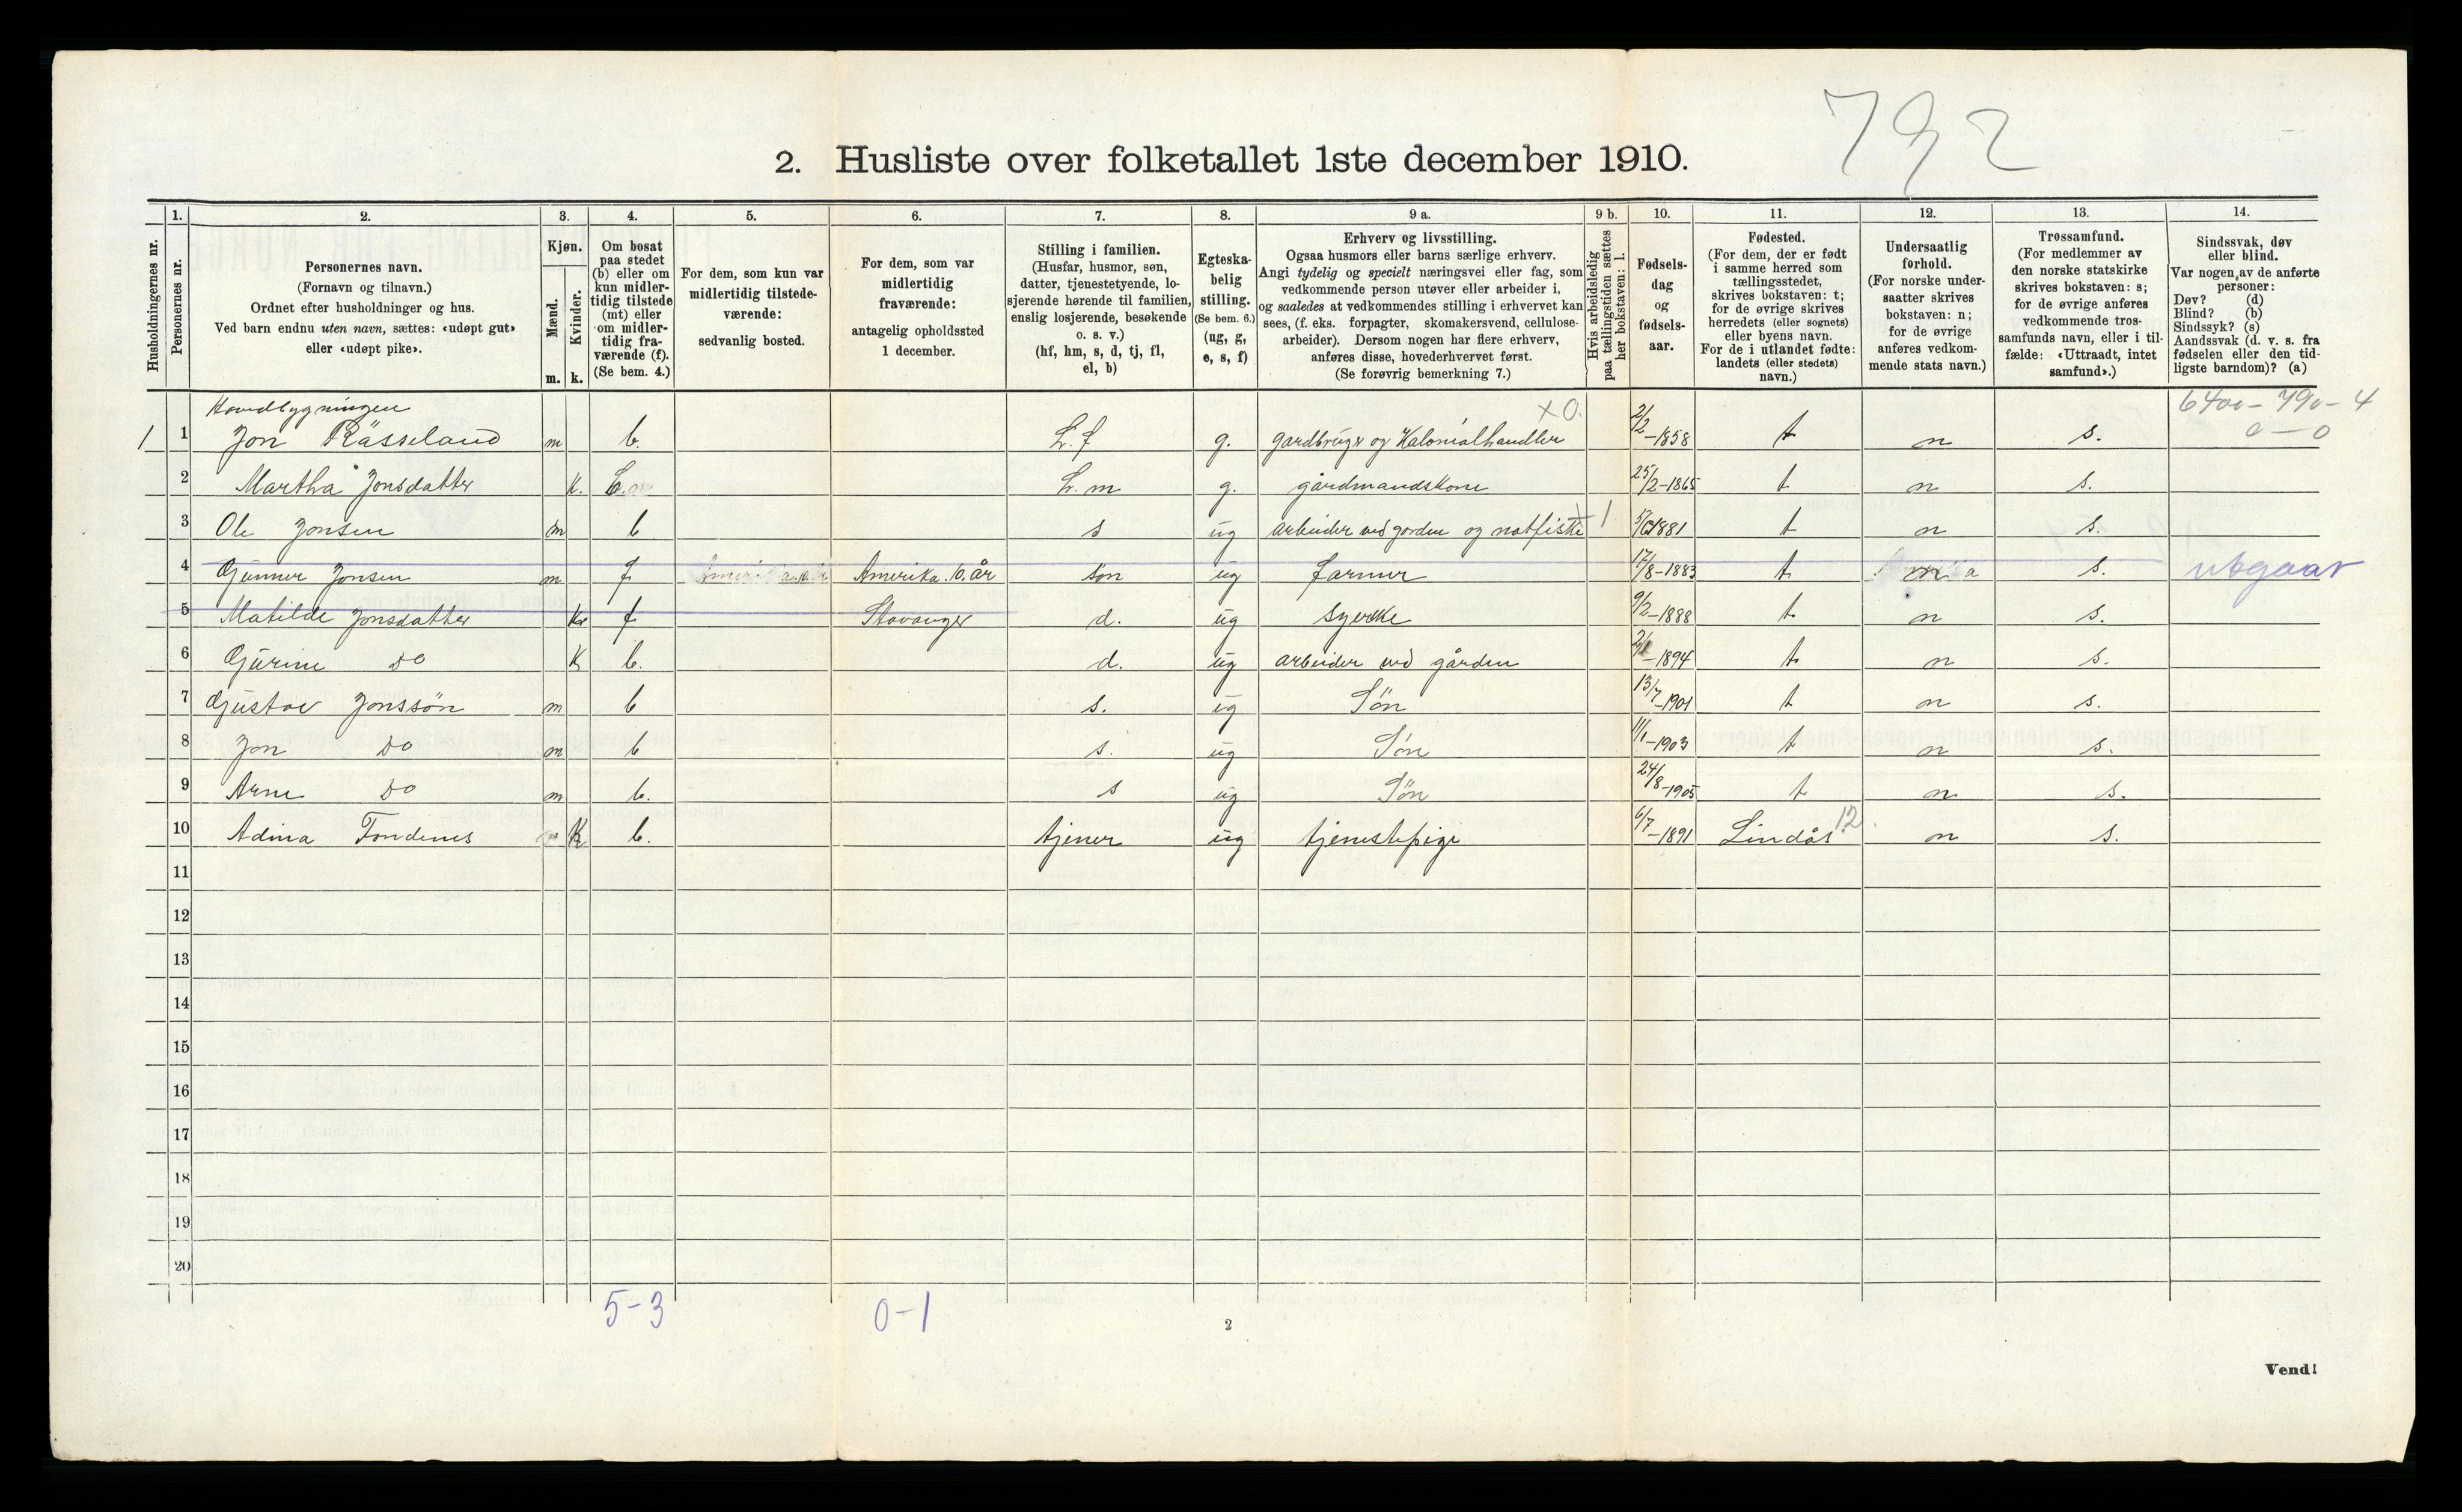 792
2. Husliste over folketallet 1ste december 1910.
Husholdningernes nr.
1.
Personernes nr.
2.
Personernes navn.
(Fornavn og tilnavn.)
Ordnet efter husholdninger og hus.
Ved barn endnu uten navn, sættes: «udøpt gut»
eller «udøpt pike».
3.
Kjøn.
Mænd.
Kvinder.
m. k.
4.
Om bosat
paa stedet
(b) eller om
kun midler-
tidig tilstede
(mt) eller
om midler-
tidig fra-
værende (f).
(Se bem. 4.)
5.
For dem, som kun var
midlertidig tilstede-
værende:
sedvanlig bosted.
6.
For dem, som var
midlertidig
fraværende:
antagelig opholdssted
1 december.
7.
Stilling i familien.
(Husfar, husmor, søn,
datter, tjenestetyende, lo-
sjerende hørende til familien,
enslig losjerende, besøkende
o. s. v.)
(hf, hm, s, d, tj, fl,
el, b)
8.
Egteska-
belig
stilling.
(Se bem. 6.)
(ug, g,
e, s, f)
9 a.
Erhverv og livsstilling.
Ogsaa husmors eller barns særlige erhverv.
Angi tydelig og specielt næringsvei eller fag, som
vedkommende person utøver eller arbeider i,
og saaledes at vedkommendes stilling i erhvervet kan
sees, (f. eks. forpagter, skomakersvend, cellulose-
arbeider). Dersom nogen har flere erhverv,
anføres disse, hovederhvervet først.
(Se forøvrig bemerkning 7.)
9 b.
Hvis arbeidsledig
paa tællingstiden sættes
her bokstaven: l.
10.
Fødsels-
dag
og
fødsels-
aar.
11.
Fødested.
(For dem, der er født
i samme herred som
tællingsstedet,
skrives bokstaven: t;
for de øvrige skrives
herredets (eller sognets)
eller byens navn.
For de i utlandet fødte:
landets (eller stedets)
navn.)
12.
Undersaatlig
forhold.
(For norske under-
saatter skrives
bokstaven: n;
for de øvrige
anføres vedkom-
mende stats navn.)
13.
Trossamfund.
(For medlemmer av
den norske statskirke
skrives bokstaven: s;
for de øvrige anføres
vedkommende tros-
samfunds navn, eller i til-
fælde: «Uttraadt, intet
samfund».)
14.
Sindssvak, døv
eller blind.
Var nogen av de anførte
personer:
Døv? (d)
Blind? (b)
Sindssyk? (s)
Aandssvak (d. v. s. fra
fødselen eller den tid-
ligste barndom)? (a)
Hovedbygningen x 0. 6400 – 790 – 4
0 – 0
1 1 Jon Råsseland m b. H.f g. gardbruger og Kolonialhandler 2/2 -1858 t n s.
2 Martha Jonsdatter k. b. H. m g. gårdmandskone 25/2-1865 t n s.
3 Ole Jonsen m b s ug arbeider ved gorden og notfiske 1 1881 t n s.
4 Gunner Jonsen m f Amerika. 10. år søn ug farmer 17/8-1883 t n s. utgaar
5 Matilde Jonsdatter k f Stavanger d. ug syerske 9/2-1888 t n s.
6 Gurine Do k b. d. ug arbeider ved gården -1894 t n s.
7 Gustav Jonssön m b s. ug Sön 13/7-1901 t n s.
8 Jon Do m b s. ug Sön 11/1-1903 t n s.
9 Arne Do m b. s ug Sön 24/8-1905 t n s.
10 Adina Fondenes k b. tjener ug tjenestepige 6/7-1891 Lindås 12. n s.
11
12
13
14
15
16
17
18
19
20
5-3 0-1
2
Vend!